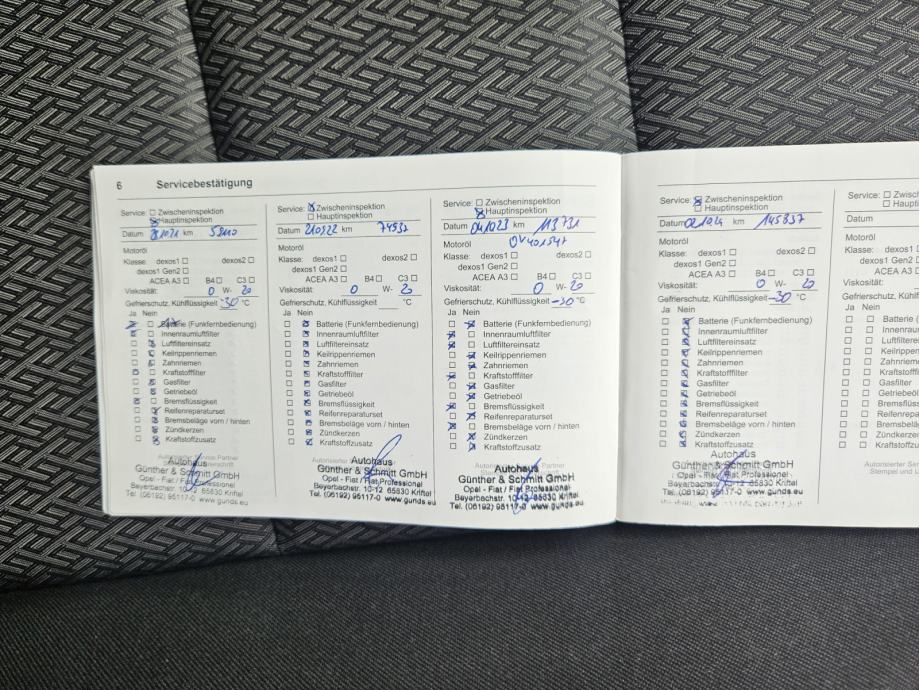 6 Servicebestätigung
Service: Zwischeninspektion
Hauptinspektion
Datum km
Motoröl
Klasse: dexos1 dexos2
dexos1 Gen2
ACEA A3 B4 C3
Viskosität: 0 W- 20
Gefrierschutz, Kühlflüssigkeit -30 °C
Ja Nein
Batterie (Funkfernbedienung)
Innenraumluftfilter
Luftfiltereinsatz
Keilrippenriemen
Zahnriemen
Kraftstofffilter
Gasfilter
Getriebeöl
Bremsflüssigkeit
Reifenreparaturset
Bremsbeläge vorn / hinten
Zündkerzen
Kraftstoffzusatz
Autohaus
Günther & Schmitt GmbH
Opel - Fiat / Fiat Professionel
Beyerbachstr. 10-12 65830 Kriftel
Tel. (06192) 95117-0 www.gunds.eu
Service: Zwischeninspektion
Hauptinspektion
Datum km 74537
Motoröl
Klasse: dexos1 dexos2
dexos1 Gen2
ACEA A3 B4 C3
Viskosität: 0 W- 20
Gefrierschutz, Kühlflüssigkeit °C
Ja Nein
Batterie (Funkfernbedienung)
Innenraumluftfilter
Luftfiltereinsatz
Keilrippenriemen
Zahnriemen
Kraftstofffilter
Gasfilter
Getriebeöl
Bremsflüssigkeit
Reifenreparaturset
Bremsbeläge vorn / hinten
Zündkerzen
Kraftstoffzusatz
Autohaus
Günther & Schmitt GmbH
Opel - Fiat / Fiat Professionel
Beyerbachstr. 10-12 65830 Kriftel
Tel. (06192) 95117-0 www.gunds.eu
Service: Zwischeninspektion
Hauptinspektion
Datum 041023 km 113731
Motoröl
Klasse: dexos1 dexos2
dexos1 Gen2
ACEA A3 B4 C3
Viskosität: 0 W- 20
Gefrierschutz, Kühlflüssigkeit -30 °C
Ja Nein
Batterie (Funkfernbedienung)
Innenraumluftfilter
Luftfiltereinsatz
Keilrippenriemen
Zahnriemen
Kraftstofffilter
Gasfilter
Getriebeöl
Bremsflüssigkeit
Reifenreparaturset
Bremsbeläge vorn / hinten
Zündkerzen
Kraftstoffzusatz
Autohaus
Günther & Schmitt GmbH
Opel - Fiat / Fiat Professionel
Beyerbachstr. 10-12 65830 Kriftel
Tel. (06192) 95117-0 www.gunds.eu
Service: Zwischeninspektion
Hauptinspektion
Datum km 145837
Motoröl
Klasse: dexos1 dexos2
dexos1 Gen2
ACEA A3 B4 C3
Viskosität: 0 W- 20
Gefrierschutz, Kühlflüssigkeit -30 °C
Ja Nein
Batterie (Funkfernbedienung)
Innenraumluftfilter
Luftfiltereinsatz
Keilrippenriemen
Zahnriemen
Kraftstofffilter
Gasfilter
Getriebeöl
Bremsflüssigkeit
Reifenreparaturset
Bremsbeläge vorn / hinten
Zündkerzen
Kraftstoffzusatz
Autohaus
Günther & Schmitt GmbH
Opel - Fiat / Fiat Professionel
Beyerbachstr. 10-12 65830 Kriftel
Tel. (06192) 95117-0 www.gunds.eu
Service:
Datum
Motoröl
Klasse:
Viskosität:
Gefrierschutz,
Ja Nein